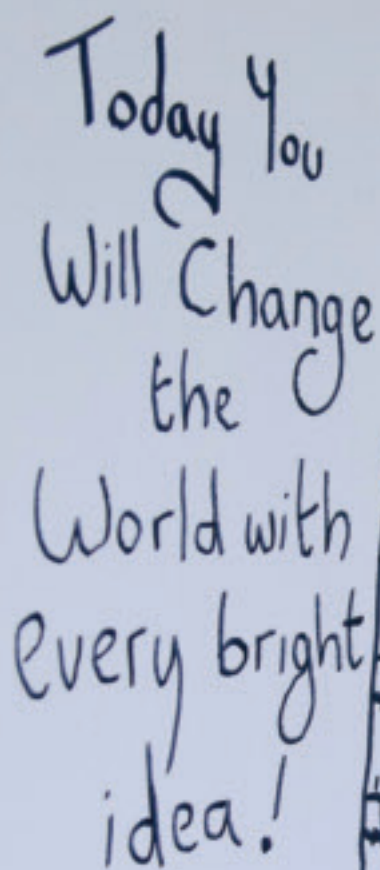 Today You
Will Change
the
World with
every bright
idea!